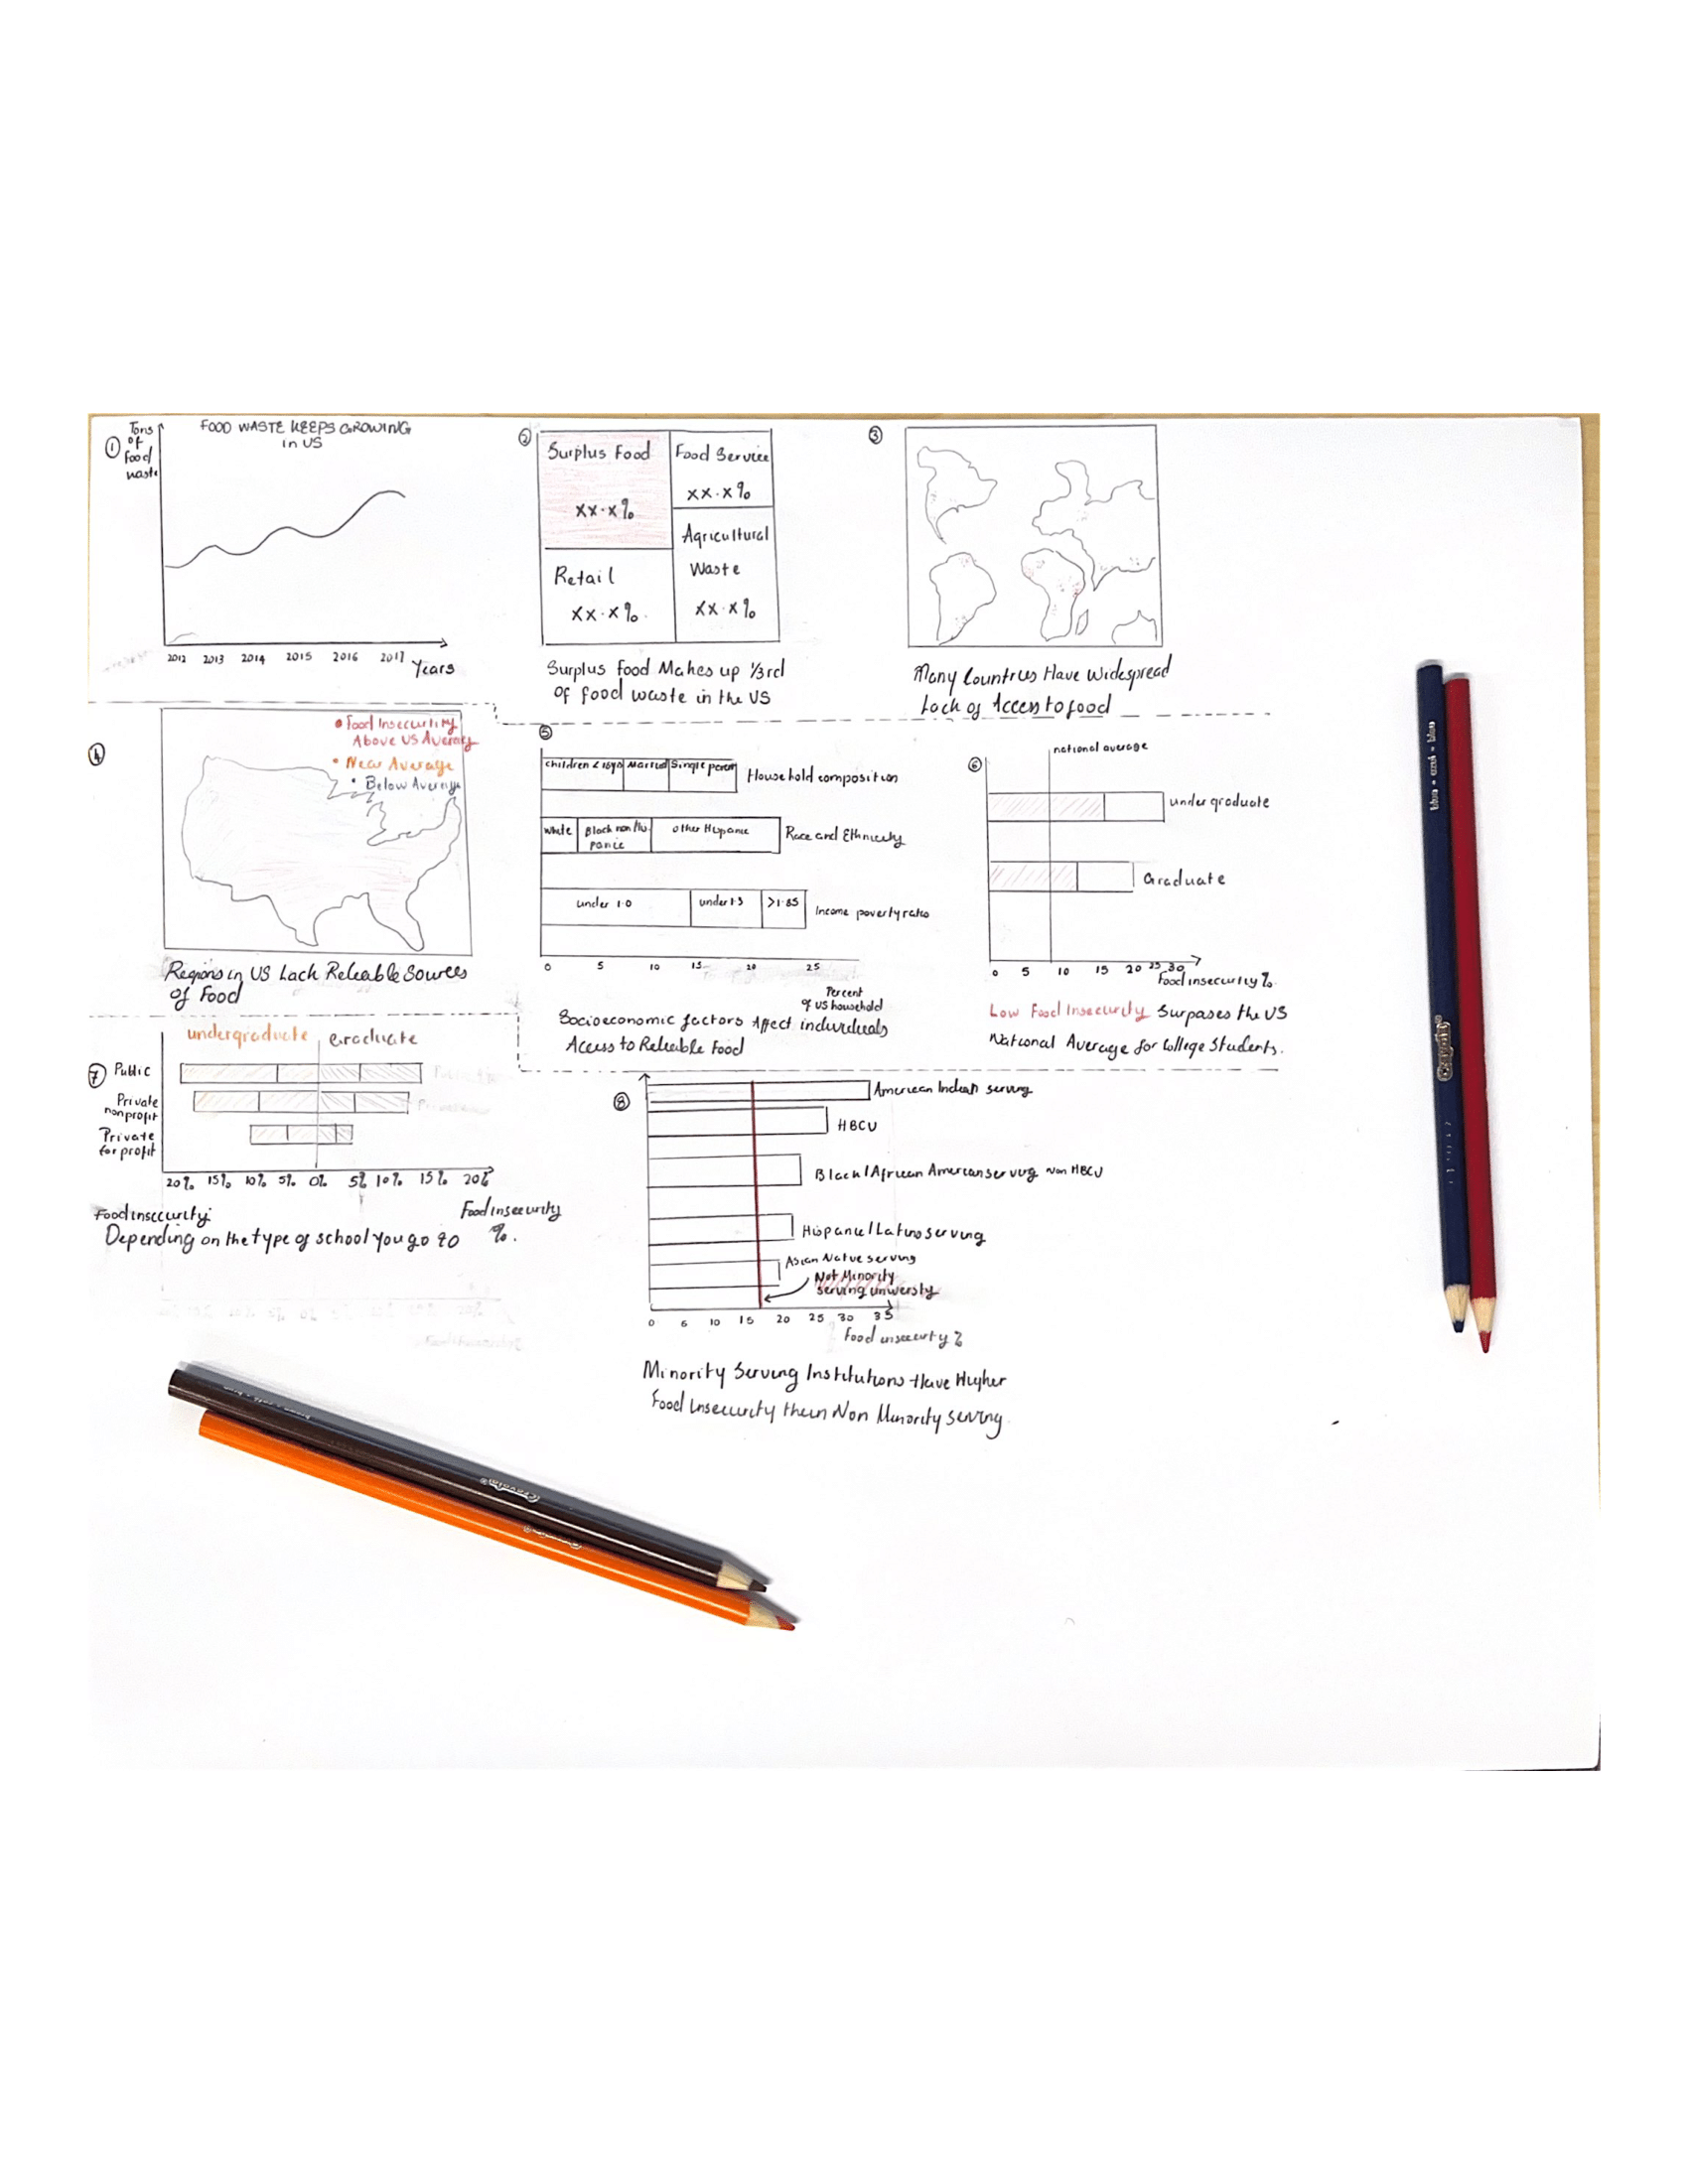 ①
Tons
of
food
waste
FOOD WASTE KEEPS GROWING
in US
2012 2013 2014 2015 2016 2017
Years
②
Surplus Food
xx.x%
Food Service
xx.x%
Retail
xx.x%.
Agricultural
Waste
xx.x%
Surplus food Makes up 1/3rd
of food waste in the US
③
Many Countries Have Widespread
Lack of Access to food
④
Food Insecurity
Above US Average
Near Average
Below Average
Regions in US Lack Reliable Sources
of Food
⑤
children < 18yo Married Single parent
Household composition
White Black non His
panic
other Hispanic
Race and Ethnicity
under 1.0 under 1.3 >1.85
Income poverty ratio
0 5 10 15 20 25
Percent
of US household
Socioeconomic factors Affect individuals
Access to Reliable Food
⑥
national average
undergraduate
Graduate
0 5 10 15 20 25 30
Food insecurity %.
Low Food Insecurity Surpases the US
National Average for College Students.
⑦
undergraduate Graduate
Public
Private
nonprofit
Private
for profit
20% 15% 10% 5% 0% 5% 10% 15% 20%
Food insecurity
Food insecurity
%.
Depending on the type of school you go to
⑧
American Indian serving
HBCU
Black/African American serving non HBCU
Hispanic/Latino serving
Asian Native serving
Not Minority
serving university
0 6 10 15 20 25 30 35
Food insecurity %
Minority Serving Institutions Have Higher
Food insecurity than Non Minority serving.
Crayola
blue • azul • bleu
Crayola